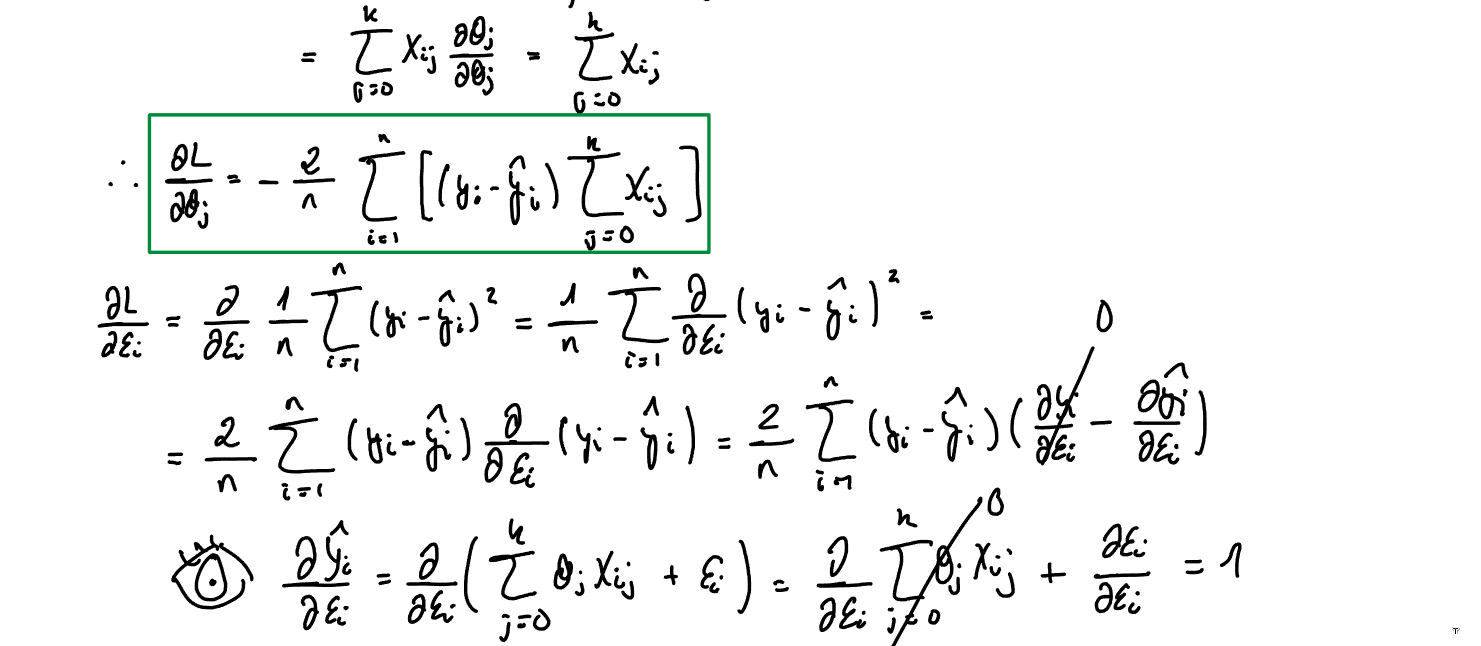 = \sum_{j=0}^{k} x_{ij} \frac{\partial \theta_j}{\partial \theta_j} = \sum_{j=0}^{k} x_{ij}
∴ \frac{\partial L}{\partial \theta_j} = - \frac{2}{n} \sum_{i=1}^{n} [(y_i - \hat{y}_i) \sum_{j=0}^{k} x_{ij}]
\frac{\partial L}{\partial \varepsilon_i} = \frac{\partial}{\partial \varepsilon_i} \frac{1}{n} \sum_{i=1}^{n} (y_i - \hat{y}_i)^2 = \frac{1}{n} \sum_{i=1}^{n} \frac{\partial}{\partial \varepsilon_i} (y_i - \hat{y}_i)^2 =
= \frac{2}{n} \sum_{i=1}^{n} (y_i - \hat{y}_i) \frac{\partial}{\partial \varepsilon_i} (y_i - \hat{y}_i) = \frac{2}{n} \sum_{i=1}^{n} (y_i - \hat{y}_i) (\cancelto{0}{\frac{\partial y_i}{\partial \varepsilon_i}} - \frac{\partial \hat{y}_i}{\partial \varepsilon_i})
\frac{\partial \hat{y}_i}{\partial \varepsilon_i} = \frac{\partial}{\partial \varepsilon_i} ( \sum_{j=0}^{k} \theta_j x_{ij} + \varepsilon_i ) = \cancelto{0}{\frac{\partial}{\partial \varepsilon_i} \sum_{j=0}^{k} \theta_j x_{ij}} + \frac{\partial \varepsilon_i}{\partial \varepsilon_i} = 1